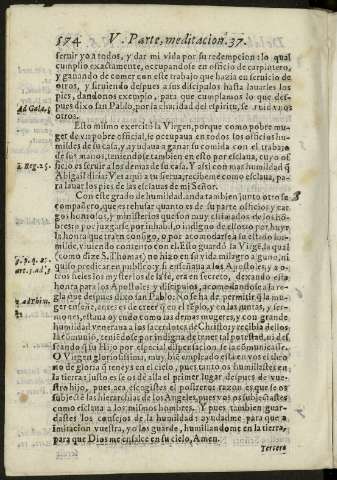 574 V. Parte, meditacion. 37.
seruir yo a todos, y dar mi vida por su redempcion: lo qual
cumplio exactamente, occupandose en officio de carpintero,
y ganando de comer con este trabajo que hazia en seruicio de
otros, y siruiendo despues a sus discipulos hasta lauarles los
pies, dandonos exemplo, para que cumplamos lo que des-
pues dixo san Pablo, por la charidad del espiritu, seruid vnos
otros.
Esto mismo exercitò la Virgen, porque como pobre mu-
ger de vn pobre official, se occupaua en todos los officios hu-
mildes de su casa, y ayudaua a ganar su comida con el trabajo
de sus manos, teniendose tambien en esto por esclaua, cuyo of-
ficio es seruir a los demas de su casa. Y assi con mas humildad q̃
Abigail diria: Veis aqui a tu sierua, recibeme como esclaua, pa-
ra lauar los pies de las esclauas de mi Señor.
Con este grado de humildad anda tambien junto otro su
compañero, que es rehusar quanto es de su parte officios y car-
gos honrosos, y ministerios que son muy estimados de los hō-
bres o por juzgarse por inhabil o indigno dellos o por huyr
la honra que traen consigo, o por acomodarse a la estado hu-
milde, viuiendo contento con el. Esto guardó la Virgē, la qual
(como dize S. Thomas) no hizo en su vida milagro alguno, ni
quiso predicar en publico y si enseñaua a los Apostoles, y a o-
tros fieles los mysterios de la fe, era en secreto, dexando esta
honra para los Apostoles y discipulos, acomodandose a la re-
gla que despues dixo san Pablo: No se ha de permitir q̃ la mu-
ger enseñe,
humildad veneraua a los sacerdotes de Christo: y recibia dellos
la comunió, teniendose por indigna de
O Virgen gloriosissima, muy biē empleado està en vos el thro-
no de gloria q̃ teneys en el cielo, pues tanto os humillastes en
la tierra: justo es se os dè allà el primer lugar despues de vues-
tro hijo, pues acà escogistes el postrero: razon es que se os
subjecte las hierarchias de los Angeles, pues vos os subjectastes
como esclaua a los mismos hombres. Y pues tambien guar-
dastes los consejos de la humildad: ayudadme para que a
imitacion vuestra, yo los guarde, humillandome en la tierra,
para que Dios me ensalce en su cielo, Amen.
Tercero